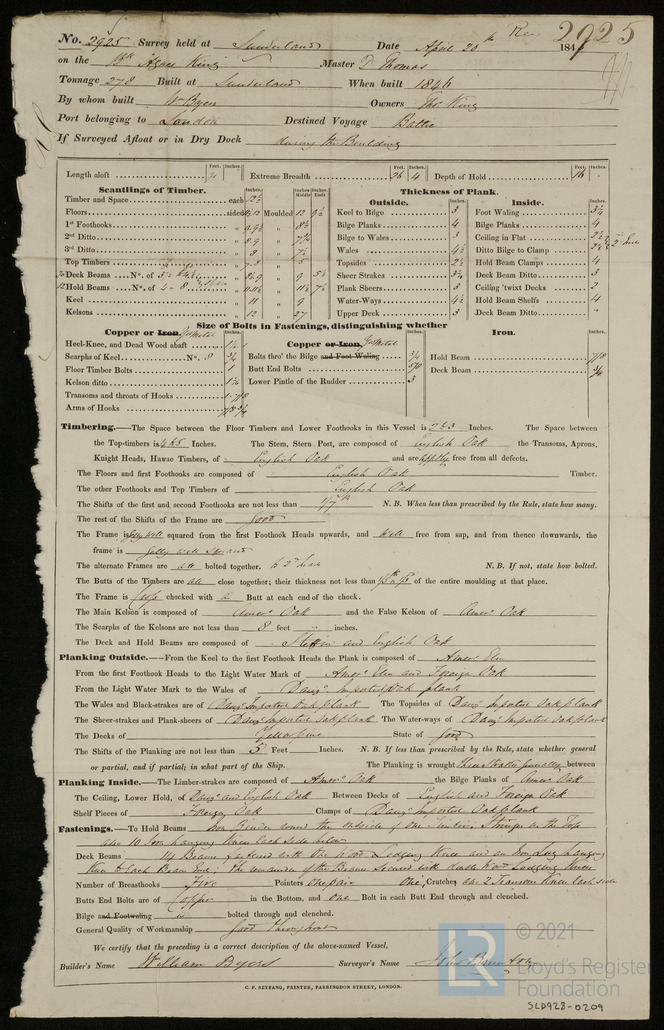 No. 2925 Survey held at Sunderland Date April 20th 1846 Rec 2925
on the Bk Agnes King Master D Thomas
Tonnage 278 Built at Sunderland When built 1846
By whom built Wm Byers Owners Thos King
Port belonging to London Destined Voyage Baltic
If Surveyed Afloat or in Dry Dock during the Building
Feet. Inches. Feet. Inches. Feet. Inches.
Length aloft Extreme Breadth 26 4 Depth of Hold 16
Scantlings of Timber.
Inches. Inches Middle Inches Ends
Timber and Space each
Floors sided Moulded 12
1st Foothooks "
2nd Ditto "
3rd Ditto " 8 "
Top Timbers " " 5
Deck Beams No. of " " 9
Hold Beams No. of "
Keel " 11 " 9
Kelsons " 12 " 27
Thickness of Plank.
Outside. Inches.
Keel to Bilge 3
Bilge Planks 4
Bilge to Wales 3
Wales 4½
Topsides 2½
Sheer Strakes
Plank Sheers 3
Water-Ways 4½
Upper Deck 3
Inside. Inches.
Foot Waling
Bilge Planks 4
Ceiling in Flat 2½
Ditto Bilge to Clamp
Hold Beam Clamps 4
Deck Beam Ditto 3
Ceiling 'twixt Decks 2
Hold Beam Shelfs 4
Deck Beam Ditto "
Size of Bolts in Fastenings, distinguishing whether
Copper or Iron. Y Metal Inches.
Heel-Knee, and Dead Wood abaft
Scarphs of Keel No. 8 ¾
Floor Timber Bolts 1
Kelson ditto
Transoms and throats of Hooks
Arms of Hooks
Copper or Iron. Y Metal Inches.
Bolts thro' the Bilge and Foot Waling ¾
Butt End Bolts 5/8
Lower Pintle of the Rudder 3
Iron. Inches.
Hold Beam 7/8
Deck Beam ¾
Timbering.—The Space between the Floor Timbers and Lower Foothooks in this Vessel is 2 & 3 Inches. The Space between
the Top-timbers is 4 & 5 Inches. The Stem, Stern Post, are composed of English Oak the Transoms, Aprons,
Knight Heads, Hawse Timbers, of English Oak and are free from all defects.
The Floors and first Foothooks are composed of English Oak Timber.
The other Foothooks and Top Timbers of English Oak
The Shifts of the first and second Foothooks are not less than 1/7th N. B. When less than prescribed by the Rule, state how many.
The rest of the Shifts of the Frame are good
The Frame is squared from the first Foothook Heads upwards, and well free from sap, and from thence downwards, the
frame is well squared
The alternate Frames are all bolted together. N. B. If not, state how bolted.
The Butts of the Timbers are all close together; their thickness not less than of the entire moulding at that place.
The Frame is chocked with a Butt at each end of the chock.
The Main Kelson is composed of Amern Oak and the False Kelson of Amern Oak
The Scarphs of the Kelsons are not less than 8 feet inches.
The Deck and Hold Beams are composed of Stettin and English Oak
Planking Outside.—From the Keel to the first Foothook Heads the Plank is composed of Amern Elm
From the first Foothook Heads to the Light Water Mark of Amern Elm and Foreign Oak
From the Light Water Mark to the Wales of Danzc Importer Oak plank
The Wales and Black-strakes are of Danzc Importer Oak plank The Topsides of Danzc Importer Oak plank
The Sheer-strakes and Plank-sheers of Danzc Importer Oak plank The Water-ways of Danzc Importer Oak plank
The Decks of Yellow pine State of good
The Shifts of the Planking are not less than 5 Feet Inches. N. B. If less than prescribed by the Rule, state whether general
or partial, and if partial; in what part of the Ship. The Planking is wrought between
Planking Inside.—The Limber-strakes are composed of Amern Oak the Bilge Planks of Amern Oak
The Ceiling, Lower Hold, of Danzc and English Oak Between Decks of English and Foreign Oak
Shelf Pieces of Foreign Oak Clamps of Danzc Importer Oak plank
Fastenings.—To Hold Beams Iron Rider round the outside of one Timber, Straps on the Top
also 10 Iron hanging Knees Each side below
Deck Beams 14 Beams fastened with one Wood Lodging Knee and an Iron hanging
Knee to Each Beam End, the remainder of the Beams Secured with double Wood Lodging Knees
Number of Breasthooks Five Pointers one pair one Crutches and 2 Transom Knees Each side
Butts End Bolts are of Copper in the Bottom, and one Bolt in each Butt End through and clenched.
Bilge and Footwaling bolted through and clenched.
General Quality of Workmanship good throughout
We certify that the preceding is a correct description of the above-named Vessel,
Builder's Name William Byers Surveyor's Name John Brunton
C. F. SEYFANG, PRINTER, FARRINGDON STREET, LONDON.
© 2021
LR
Lloyd's Register
Foundation
SLD928-0209